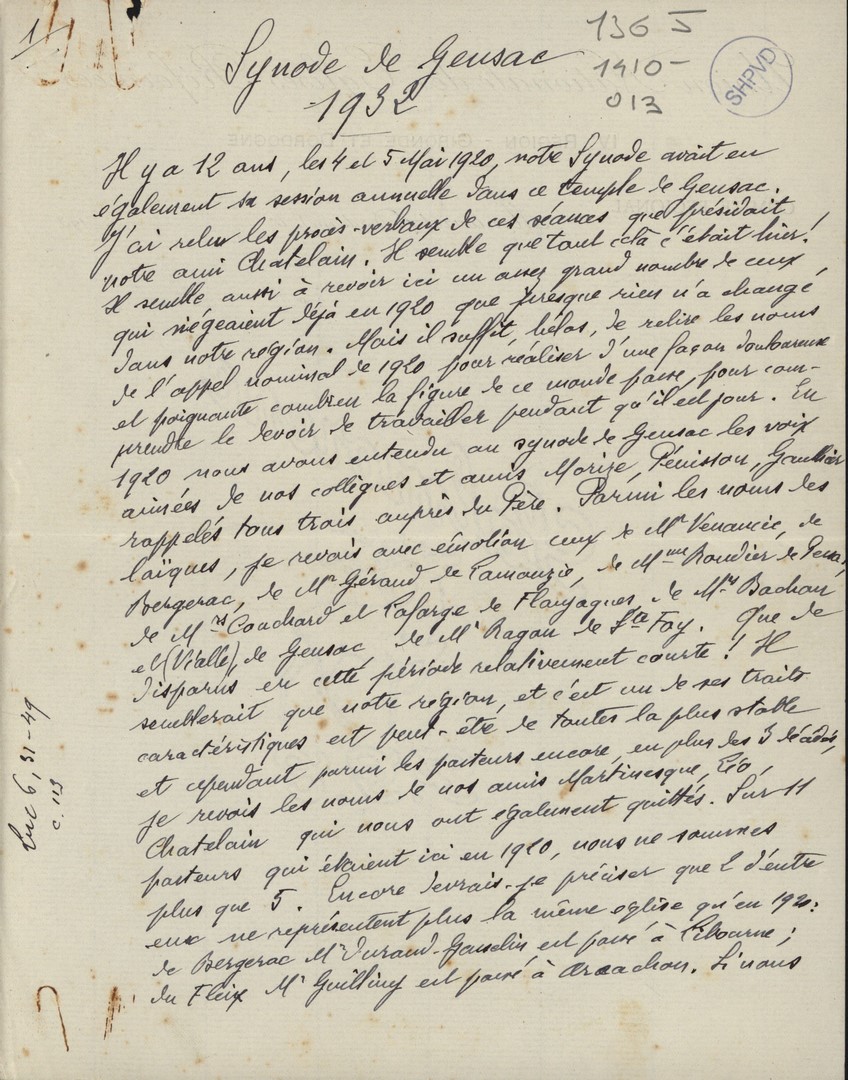 1
136 J
1410-
013
SHPVD
Synode de Gensac
1932
Il y a 12 ans, les 4 et 5 Mai 1920, notre Synode avait eu
également sa session annuelle dans ce temple de Gensac.
J'ai relu les procès-verbaux de ces séances que présidait
notre ami Chatelain. Il semble que tout cela c'était hier!
Il semble aussi à revoir ici un assez grand nombre de ceux
qui siégeaient déjà en 1920 que presque rien n'a changé
dans notre région. Mais il suffit, hélas, de relire les noms
de l'appel nominal de 1920 pour réaliser d'une façon douloureuse
et poignante combien la figure de ce monde passe, pour com-
prendre le devoir de travailler pendant qu'il est jour. En
1920 nous avons entendu au synode de Gensac les voix
aimées de nos collègues et amis Morize, Pénisson, Gaulthier
rappelés tous trois auprès du Père. Parmi les noms des
laïques, je revois avec émotion ceux de Mr Venancie, de
Bergerac, de Mr Géraud de Lamonzie, de Mme Roudier de
de Mrs Couchard et Lafarge de Flaujagues de Mrs Bachan
et (Vialle), de Gensac, de Mr Ragon de Ste Foy. Que de
disparus en cette période relativement courte! Il
semblerait que notre région, et c'est un de ses traits
caractéristiques est peut-être de toutes la plus stable
et cependant parmi les pasteurs encore, en plus des 3 décédés,
je revois les noms de nos amis Martinesque,
Chatelain qui nous ont également quittés. Sur 11
pasteurs qui étaient ici en 1920, nous ne sommes
plus que 5. Encore devrais-je préciser que 2 d'entre
eux ne représentent plus la même église qu'en 1920:
de Bergerac Mr Durand-Gaudin est passé à Libourne;
du Fleix Mr Guilliny est passé à Arcachon. Si nous
Luc 6, 31-49
c. 113